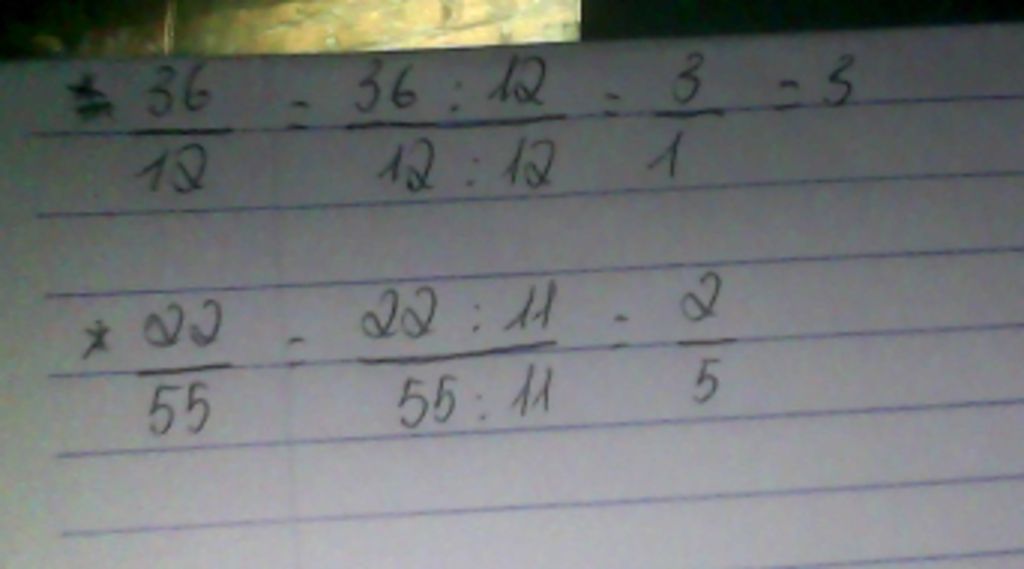 * 36/12 = 36 : 12/12 : 12 = 3/1 = 3
* 22/55 = 22 : 11/55 : 11 = 2/5